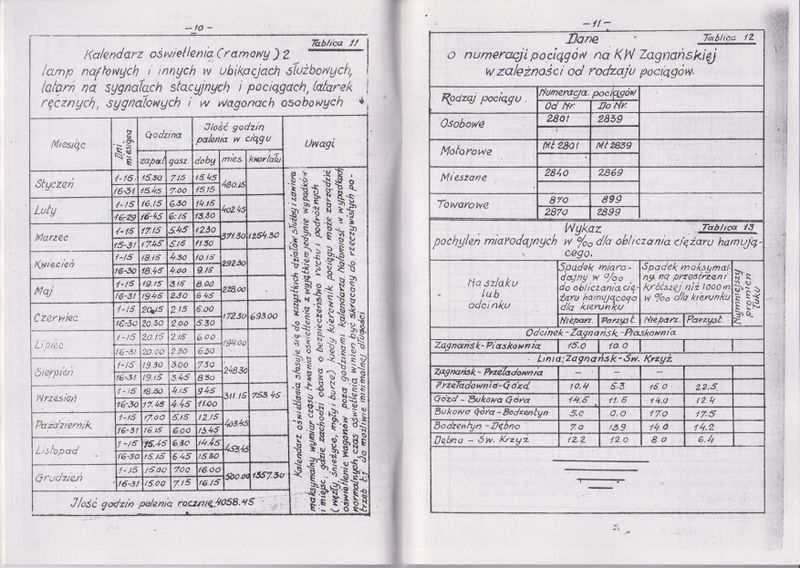 -10-
Tablica 11
Kalendarz oświetlenia (ramowy) 2
lamp naftowych i innych w ubikacjach służbowych,
latarń na sygnałach stacyjnych i pociągach, latarek
ręcznych, sygnałowych i w wagonach osobowych
Miesiąc Dni miesiąca Godzina Ilość godzin palenia w ciągu Uwagi
zapal. gasz. doby mies. kwartału
Styczeń 1-15 15.30 7.15 15.45 480.15
16-31 15.45 7.00 15.15
Luty 1-15 16.15 6.30 14.15 402.45
16-29 16.45 6.15 13.30
Marzec 1-15 17.15 5.45 12.30 371.30 1254.30
15-31 17.45 5.15 11.30
Kwiecień 1-15 18.15 4.30 10.15 292.30
16-30 18.45 4.00 9.15
Maj 1-15 19.15 3.15 8.00 228.00
16-31 19.45 2.30 6.45
Czerwiec 1-15 20.15 2.15 6.00 172.30 693.00
16-30 20.30 2.00 5.30
Lipiec 1-15 20.15 2.15 6.00 194.00
16-31 20.00 2.30 6.30
Sierpień 1-15 19.30 3.00 7.30 248.30
16-31 19.15 3.45 8.30
Wrzesień 1-15 18.30 4.15 9.45 311.15 753.45
16-30 17.45 4.45 11.00
Październik 1-15 17.00 5.15 12.15 403.45
16-31 16.15 6.00 13.45
Listopad 1-15 15.45 6.30 14.45 453.45
16-30 15.15 6.45 15.30
Grudzień 1-15 15.00 7.00 16.00 500.00 1357.30
16-31 15.00 7.15 16.15
Ilość godzin palenia rocznie 4058.45
Kalendarz oświetlenia stosuje się do wszystkich działów służby i zawiera
maksymalny wymiar czasu trwania oświetlenia z wyjątkiem jedynie wypadków
i miejsc, gdzie zachodzi obawa o bezpieczeństwo ruchu i podróżnych
(węzły, śnieżyce, mgły i burze) kiedy kierownik pociągu może zarządzić
oświetlenie wagonów poza godzinami kalendarza. Natomiast w wypadkach
normalnych, czas oświetlenia winien być skracany do rzeczywistych po-
trzeb t.j. do możliwie minimalnej długości
-11-
Tablica 12
Dane
o numeracji pociągów na KW Zagnańskiej
w zależności od rodzaju pociągów.
Rodzaj pociągu Numeracja pociągów
Od Nr. Do Nr.
Osobowe 2801 2839
Motorowe Mt 2801 Mt 2839
Mieszane 2840 2869
Towarowe 870 899
2870 2899
Tablica 13
Wykaz
pochyleń miarodajnych w ‰ dla obliczania ciężaru hamują-
cego.
Na szlaku lub odcinku
Spadek miaro-
dajny w ‰
do obliczania cię-
żaru hamującego
dla kierunku
Nieparz. Parzyst.
Spadek maksymal-
ny na przestrzeni
krótszej niż 1000m
w ‰ dla kierunku
Nieparz. Parzyst.
Najmniejszy promień łuku
Odcinek-Zagnańsk-Piaskownia
Zagnańsk-Piaskownia 15.0 10.0
Linia: Zagnańsk-Św. Krzyż
Zagnańsk-Przeładownia - - - -
Przeładownia-Gózd 10.4 5.3 15.0 22.5
Gózd-Bukowa Góra 14.5 11.5 14.0 12.4
Bukowa Góra-Bodzentyn 5.0 0.0 17.0 17.5
Bodzentyn-Dębno 7.0 13.9 14.0 14.2
Dębno-Św. Krzyż 12.2 12.0 8.0 6.4